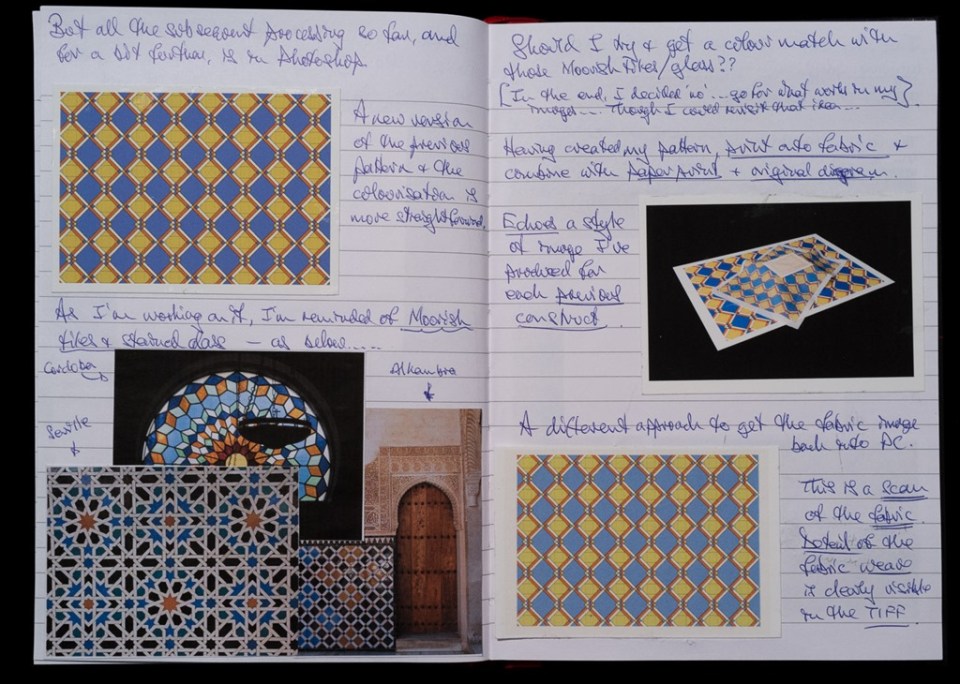 But all the subsequent processing so far, and
for a bit further, is in Photoshop.
A new version
of the previous
pattern & the
colourisation is
more straightforward.
As I'm working on it, I'm reminded of Moorish
tiles & stained glass — as below.....
Cordoba
Alhambra
Seville
Should I try & get a colour match with
those Moorish tiles/glass??
[In the end, I decided 'no'... go for what works in my
images... Though I could revisit that idea...]
Having created my pattern, print onto fabric &
combine with paper print + original diagram.
Echoes a style
of image I've
produced for
each previous
construct.
A different approach to get the fabric image
back into PC.
This is a scan
of the fabric.
Detail of the
fabric weave
is clearly visible
in the TIFF